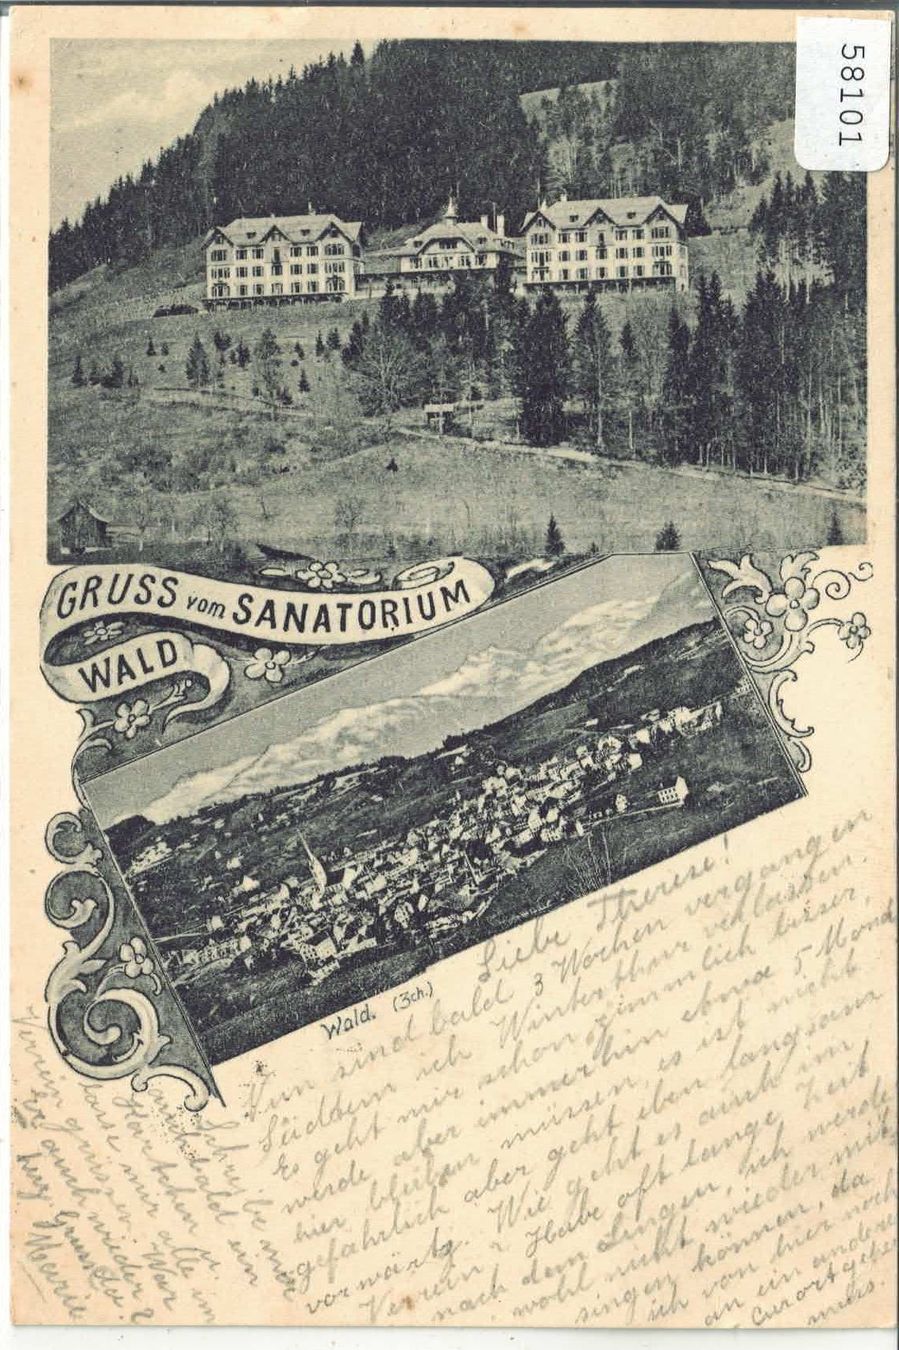 58101
GRUSS vom SANATORIUM
WALD
Wald. (Zch.)
Liebe Therese!
Nun sind bald 3 Wochen vergangen
ich Winterthur verlassen.
Es geht mir schon zimmlich besser,
werde aber immerhin etwa 5 Mond
hier bleiben müssen, es ist nicht
gefährlich aber geht eben langsam
vorwärtz. Wie geht es auch im
Verein? Habe oft lange Zeit
nach dem Singen, ich werde
wohl nicht wieder mit
singen können, da
ich von hier noch
an ein andere
Curort gehen
muss.
Schreibe mir
auch bald ein
Kärtchen &
lasse mir alle im
Verein grüssen. War
Er auch wieder?
herz. Gruss
Marie